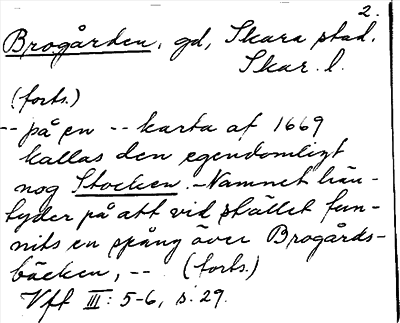 2.
Brogården, gd, Skara stad,
Skar. l.
(forts.)
-- på en -- karta af 1669
kallas den egendomligt
nog Stocken. - Namnet hän-
tyder på att vid stället fun-
nits en spång över Brogårds-
bäcken, -- (forts.)
Vft III: 5-6, s. 29.